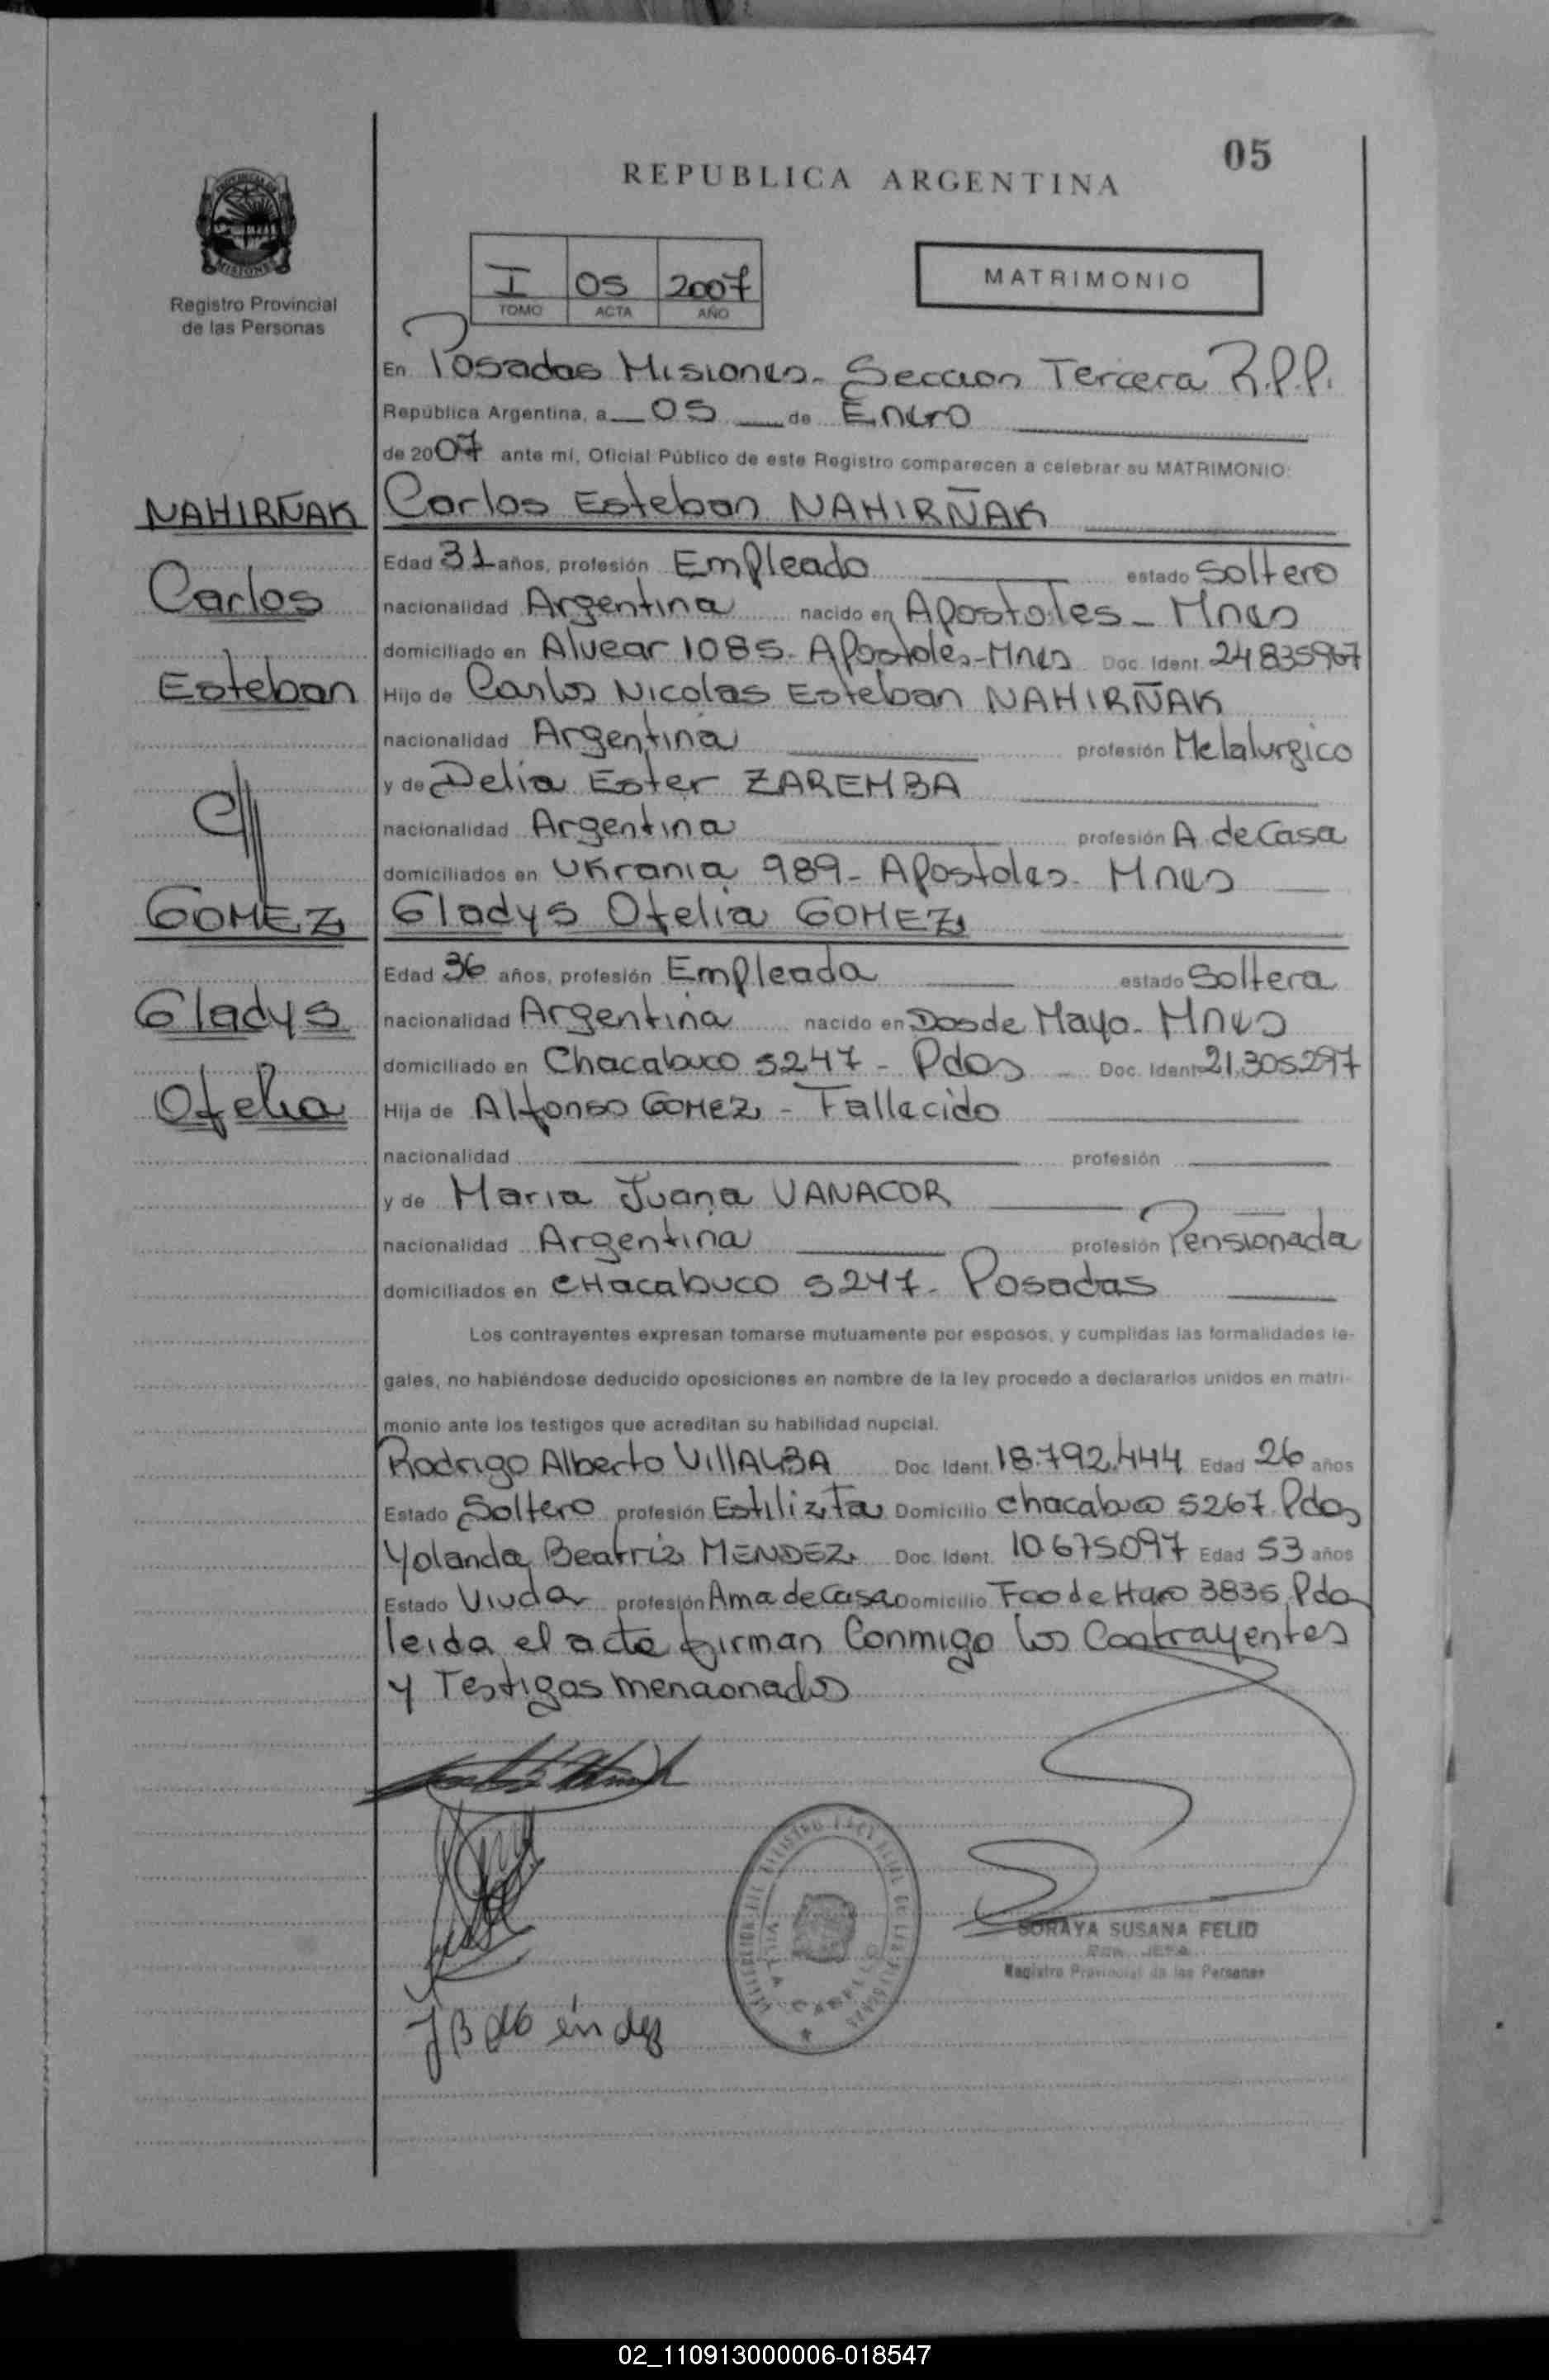 05
REPUBLICA ARGENTINA
PROVINCIA DE
MISIONES
Registro Provincial
de las Personas
I 05 2007
TOMO ACTA AÑO
MATRIMONIO
En Posadas Misiones- Seccion Tercera R.P.P.
República Argentina, a 05 de Enero
de 2007 ante mí, Oficial Público de este Registro comparecen a celebrar su MATRIMONIO:
NAHIRÑAK Carlos Esteban NAHIRÑAK
Edad 31 años, profesión Empleado estado Soltero
Carlos nacionalidad Argentina nacido en Apostoles- Mnes
domiciliado en Alvear 1085- Apostoles-Mnes Doc. Ident. 24835967
Esteban Hijo de Carlos Nicolas Esteban NAHIRÑAK
nacionalidad Argentina profesión Metalurgico
y de Delia Ester ZAREMBA
nacionalidad Argentina profesión A de Casa
domiciliados en Ukrania 989- Apostoles- Mnes
GOMEZ Gladys Ofelia GOMEZ
Edad 36 años, profesión Empleada estado Soltera
Gladys nacionalidad Argentina nacido en Dos de Mayo- Mnes
domiciliado en Chacabuco 5247 - Pdas Doc. Ident. 21.305297
Ofelia Hija de Alfonso GOMEZ - Fallecido
nacionalidad profesión
y de Maria Juana VANACOR
nacionalidad Argentina profesión Pensionada
domiciliados en CHacabuco 5247- Posadas
Los contrayentes expresan tomarse mutuamente por esposos, y cumplidas las formalidades le-
gales, no habiéndose deducido oposiciones en nombre de la ley procedo a declararlos unidos en matri-
monio ante los testigos que acreditan su habilidad nupcial.
Rodrigo Alberto VillALBA Doc. Ident. 18.792.444 Edad 26 años
Estado Soltero profesión Estilizta Domicilio chacabuco 5267 Pdas
Yolanda Beatriz MENDEZ Doc. Ident. 10.675097 Edad 53 años
Estado Viuda profesión Ama de Casa Domicilio Fco de Haro 3835 Pda
leida el acta firman Conmigo los Contrayentes
y Testigos mencionados
SORAYA SUSANA FELID
JEFA
Registro Provincial de las Personas
VILLA CABELLO
02_110913000006-018547